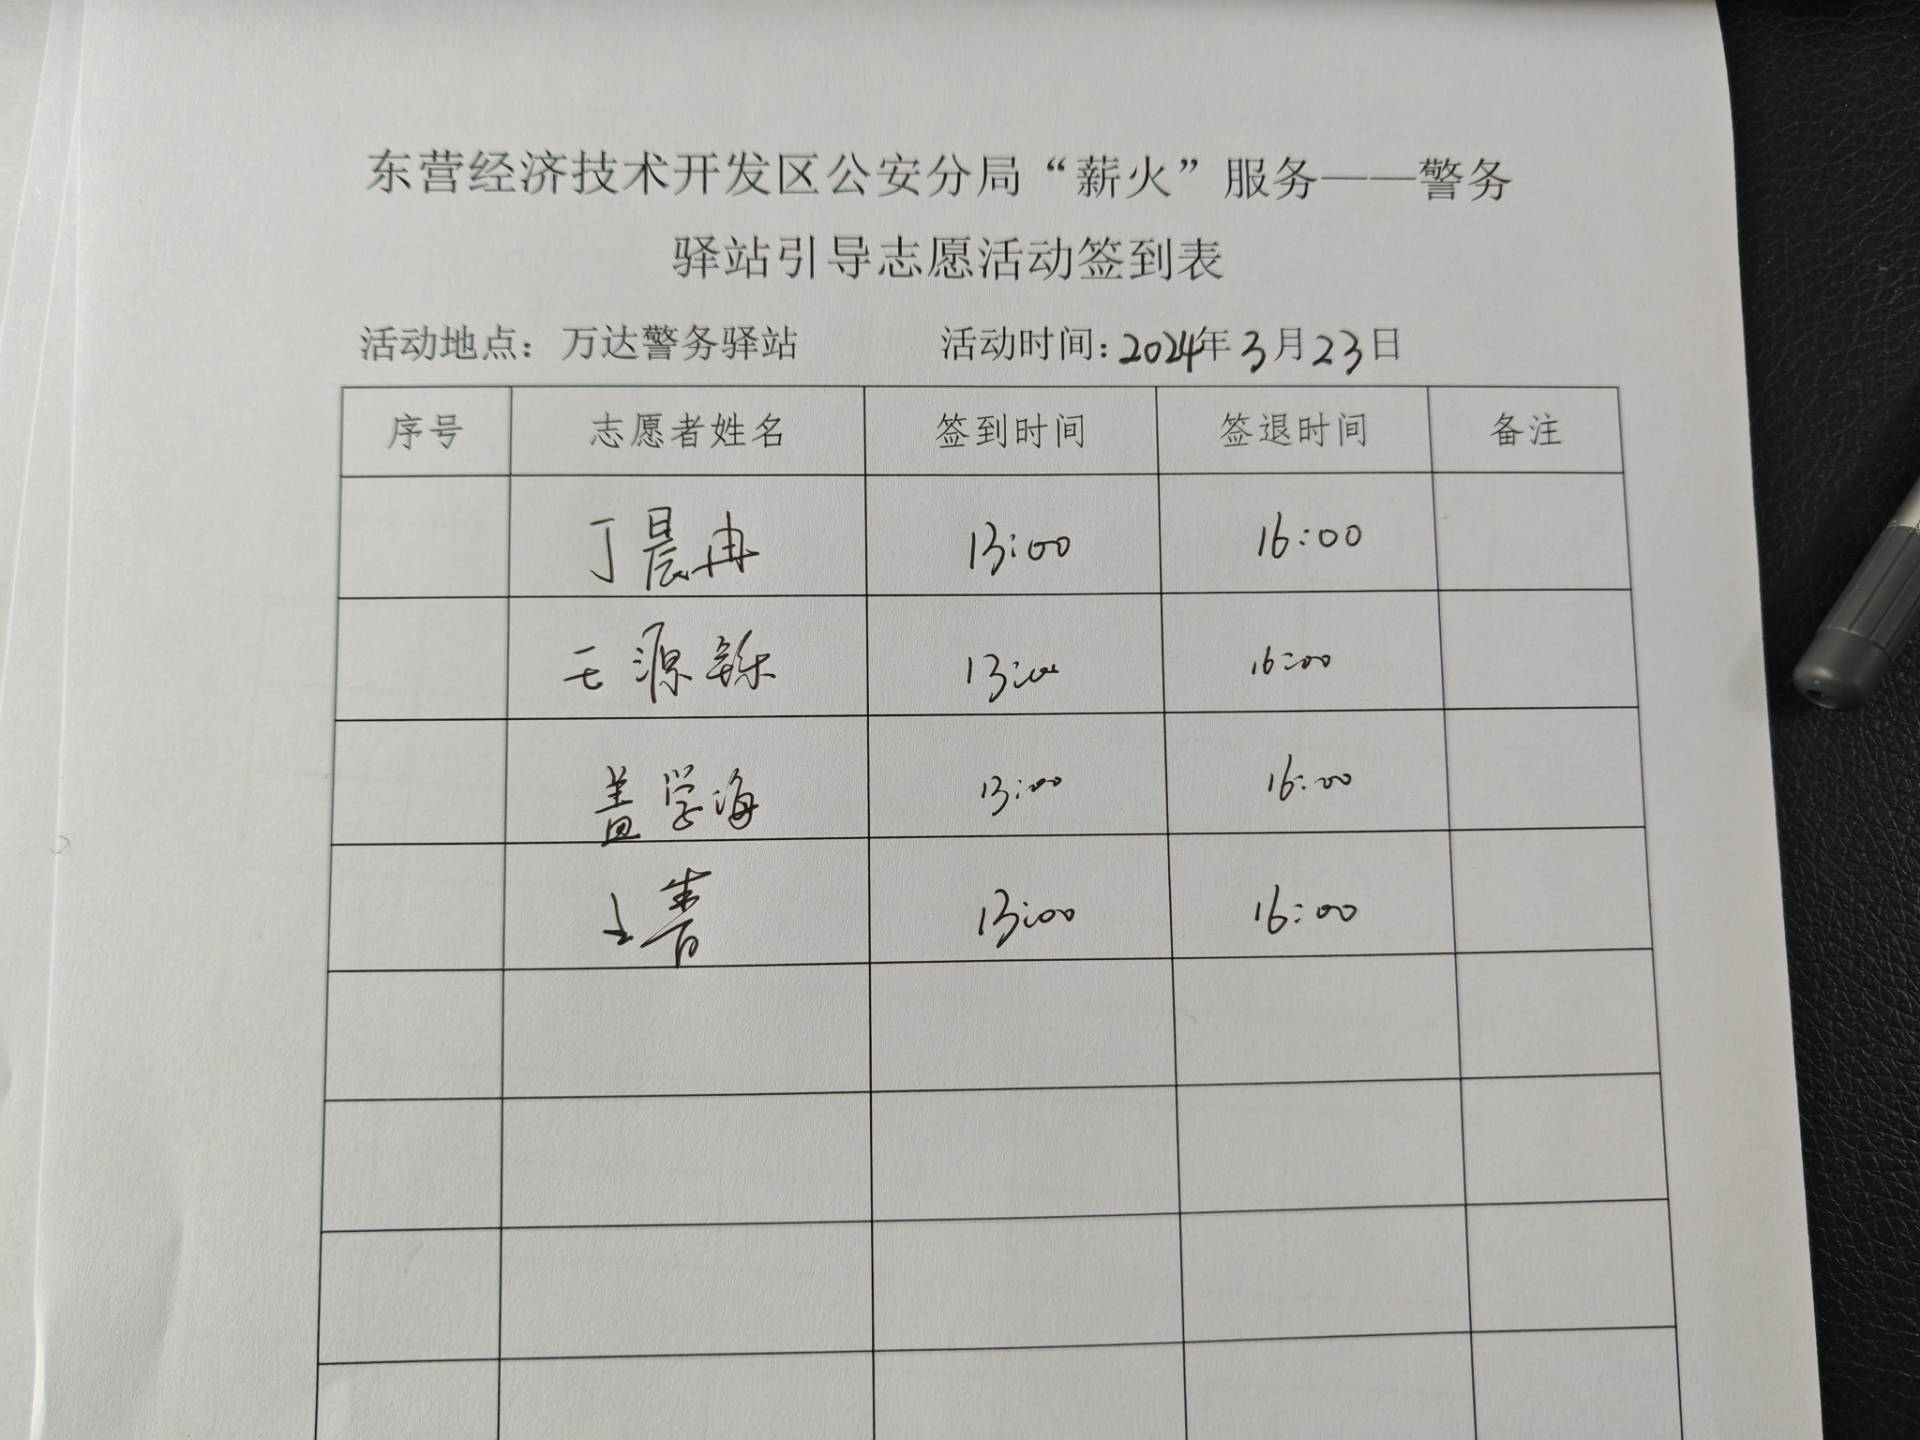 东营经济技术开发区公安分局“薪火”服务——警务
驿站引导志愿活动签到表
活动地点：万达警务驿站 活动时间：2024年3月23日
序号 志愿者姓名 签到时间 签退时间 备注
丁晨冉 13:00 16:00
王源铄 13:00 16:00
盖学海 13:00 16:00
王青 13:00 16:00